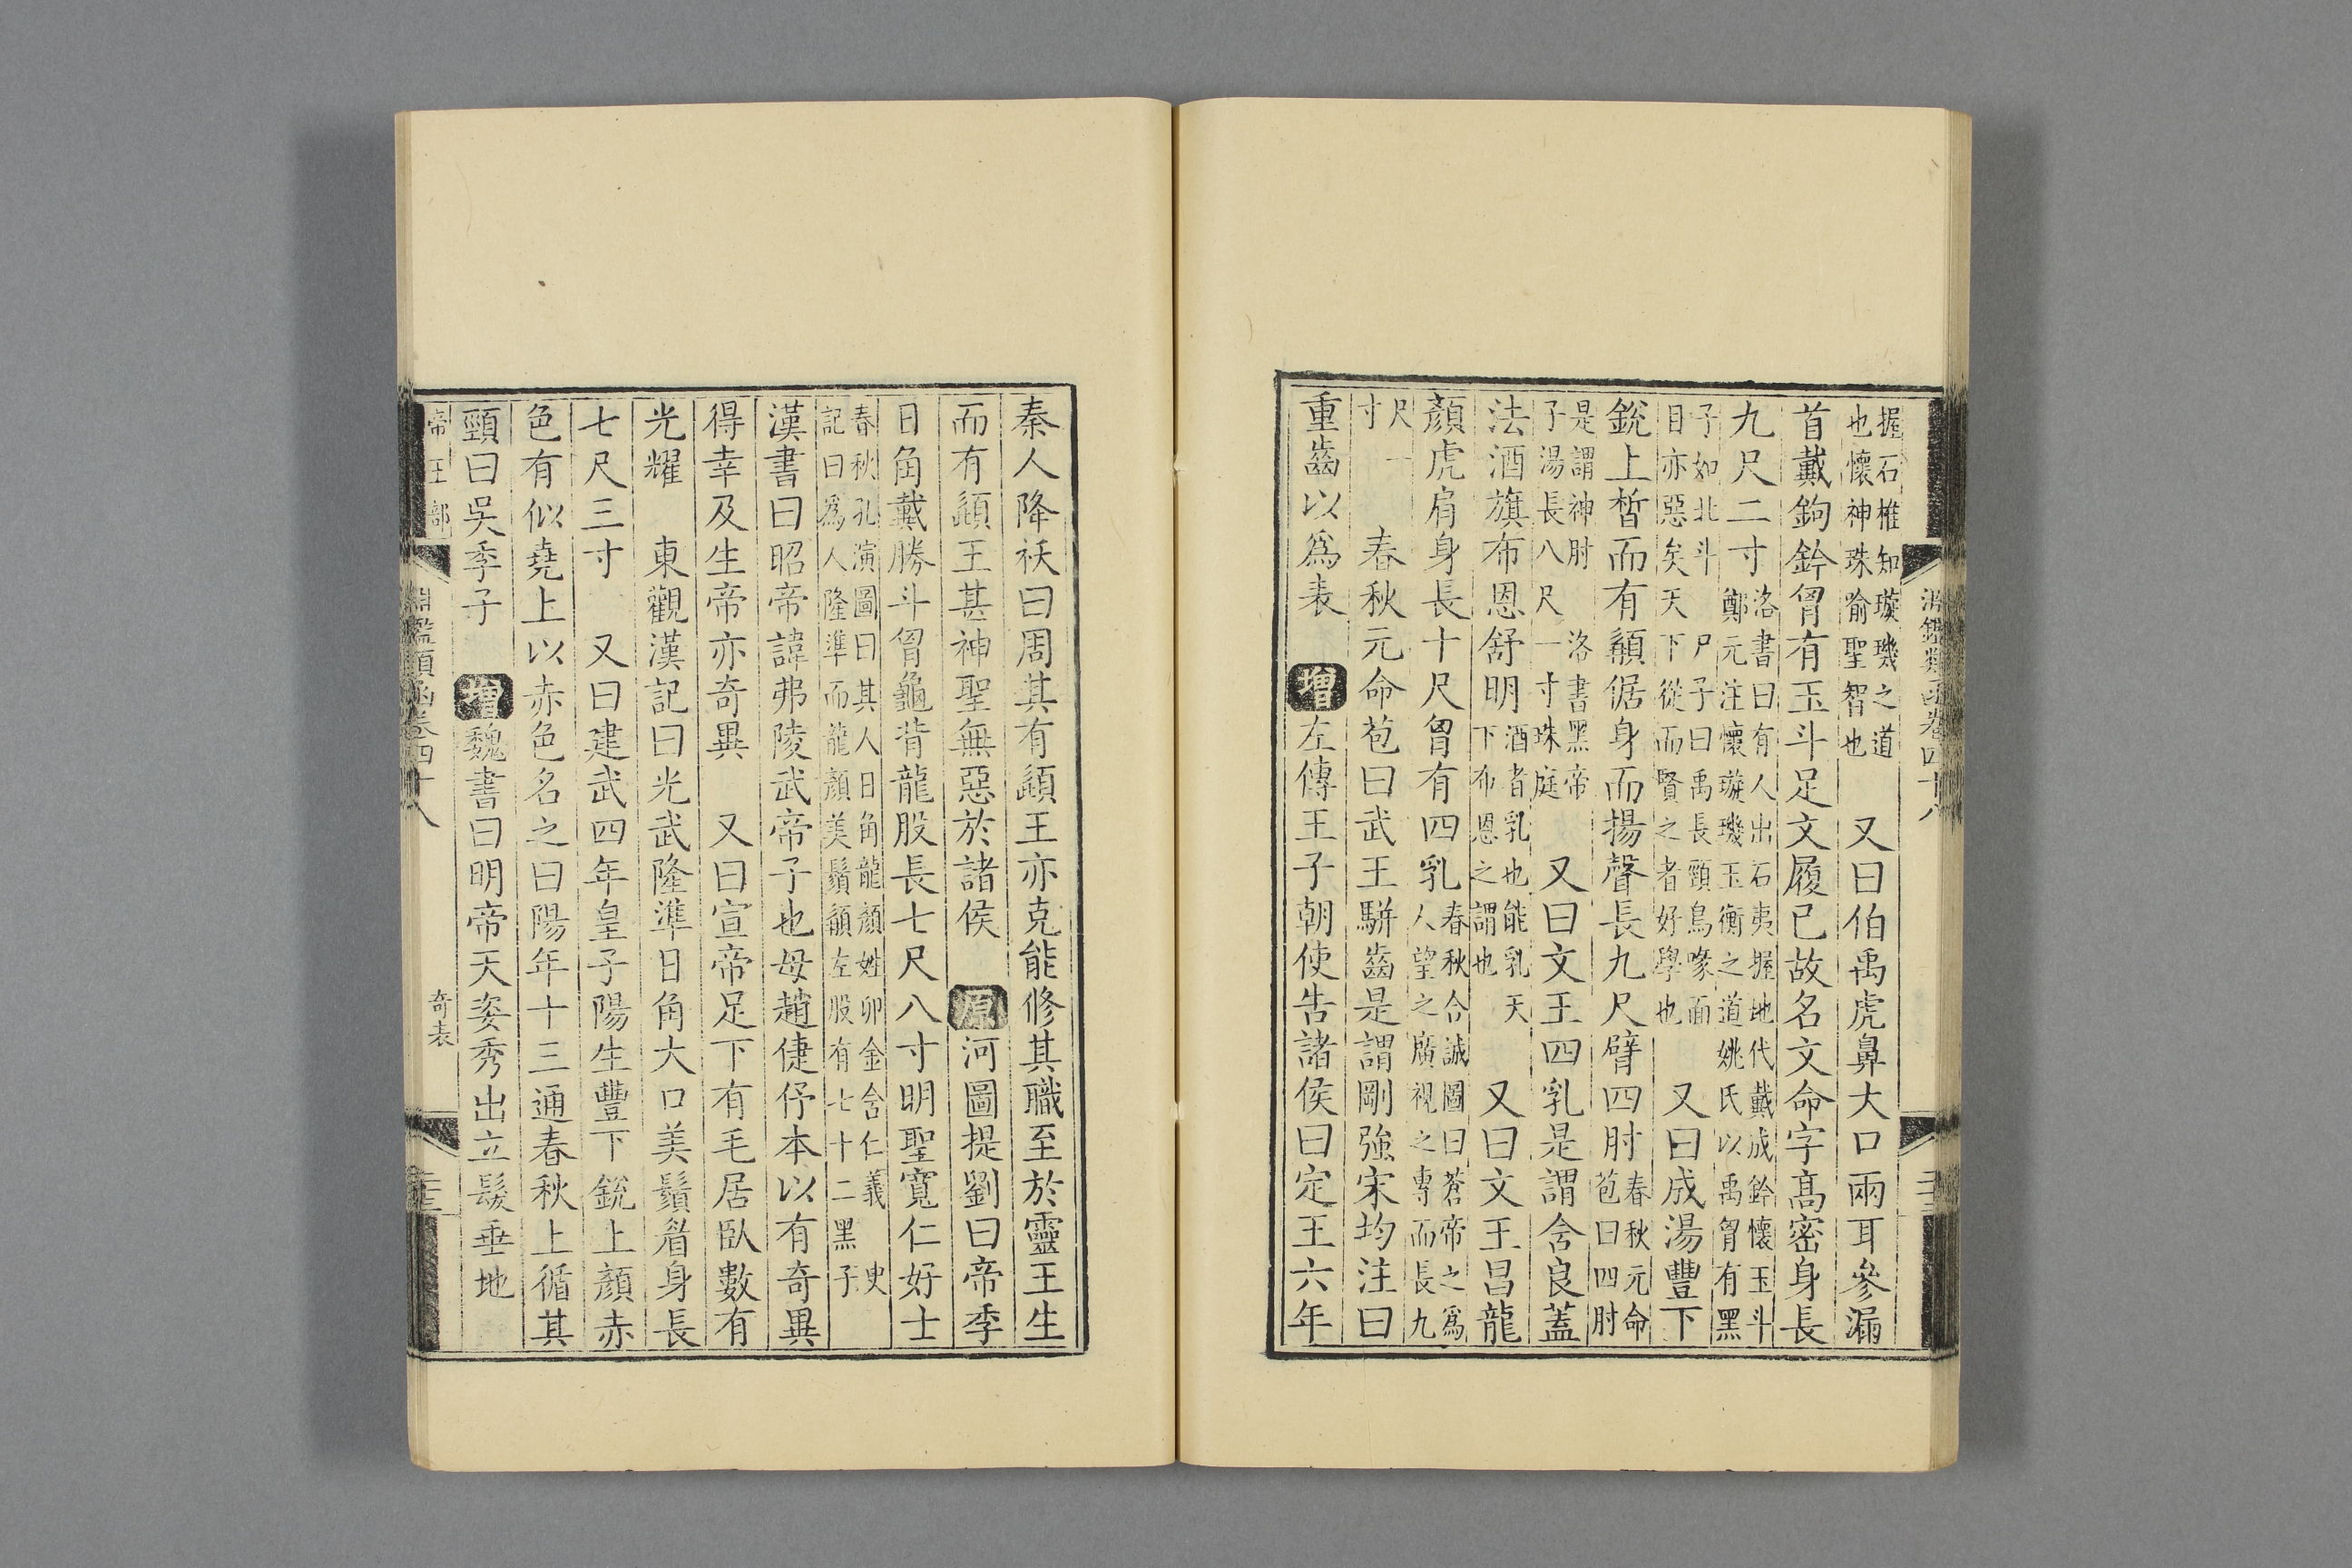 淵鑑類函卷四十八
握石椎知璇璣之道也懷神珠喻聖智也　又曰伯禹虎鼻大口兩耳參漏
首戴鉤鈐胷有玉斗足文履已故名文命字髙密身長
九尺二寸洛書曰有人出石夷握地代戴成鈐懷玉斗鄭元注懷璇璣玉衡之道姚氏以禹胷有黑
子如北斗　尸子曰禹長頸鳥喙面目亦惡矣天下從而賢之者好學也　又曰成湯豐下
銳上皙而有倨身而揚聲長九尺臂四肘春秋元命苞曰四肘
是謂神肘　洛書黑帝子湯長八尺一寸珠庭　又曰文王四乳是謂含良蓋
法酒旗布恩舒明酒者乳也能乳天下布恩之謂也　又曰文王昌龍
顏虎肩身長十尺胷有四乳春秋合誠圖曰蒼帝之爲人望之廣視之專而長九
尺一寸　春秋元命苞曰武王駢齒是謂剛強宋均注曰
重齒以爲表　增左傳王子朝使告諸侯曰定王六年
秦人降祅曰周其有頾王亦克能修其職至於靈王生
而有頾王甚神聖無惡於諸侯　原河圖提劉曰帝季
日角戴勝斗胷龜背龍股長七尺八寸明聖寬仁好士
春秋孔演圖曰其人日角龍顏姓卯金含仁義　史記曰爲人隆準而龍顏美鬚左股有七十二黑子
漢書曰昭帝諱弗陵武帝子也母趙倢伃本以有奇異
得幸及生帝亦奇異　又曰宣帝足下有毛居臥數有
光耀　東觀漢記曰光武隆準日角大口美鬚眉身長
七尺三寸　又曰建武四年皇子陽生豐下銳上顏赤
色有似堯上以赤色名之曰陽年十三通春秋上循其
頸曰吳季子　增魏書曰明帝天姿秀出立髮垂地
帝王部　淵鑑類函卷四十八　奇表